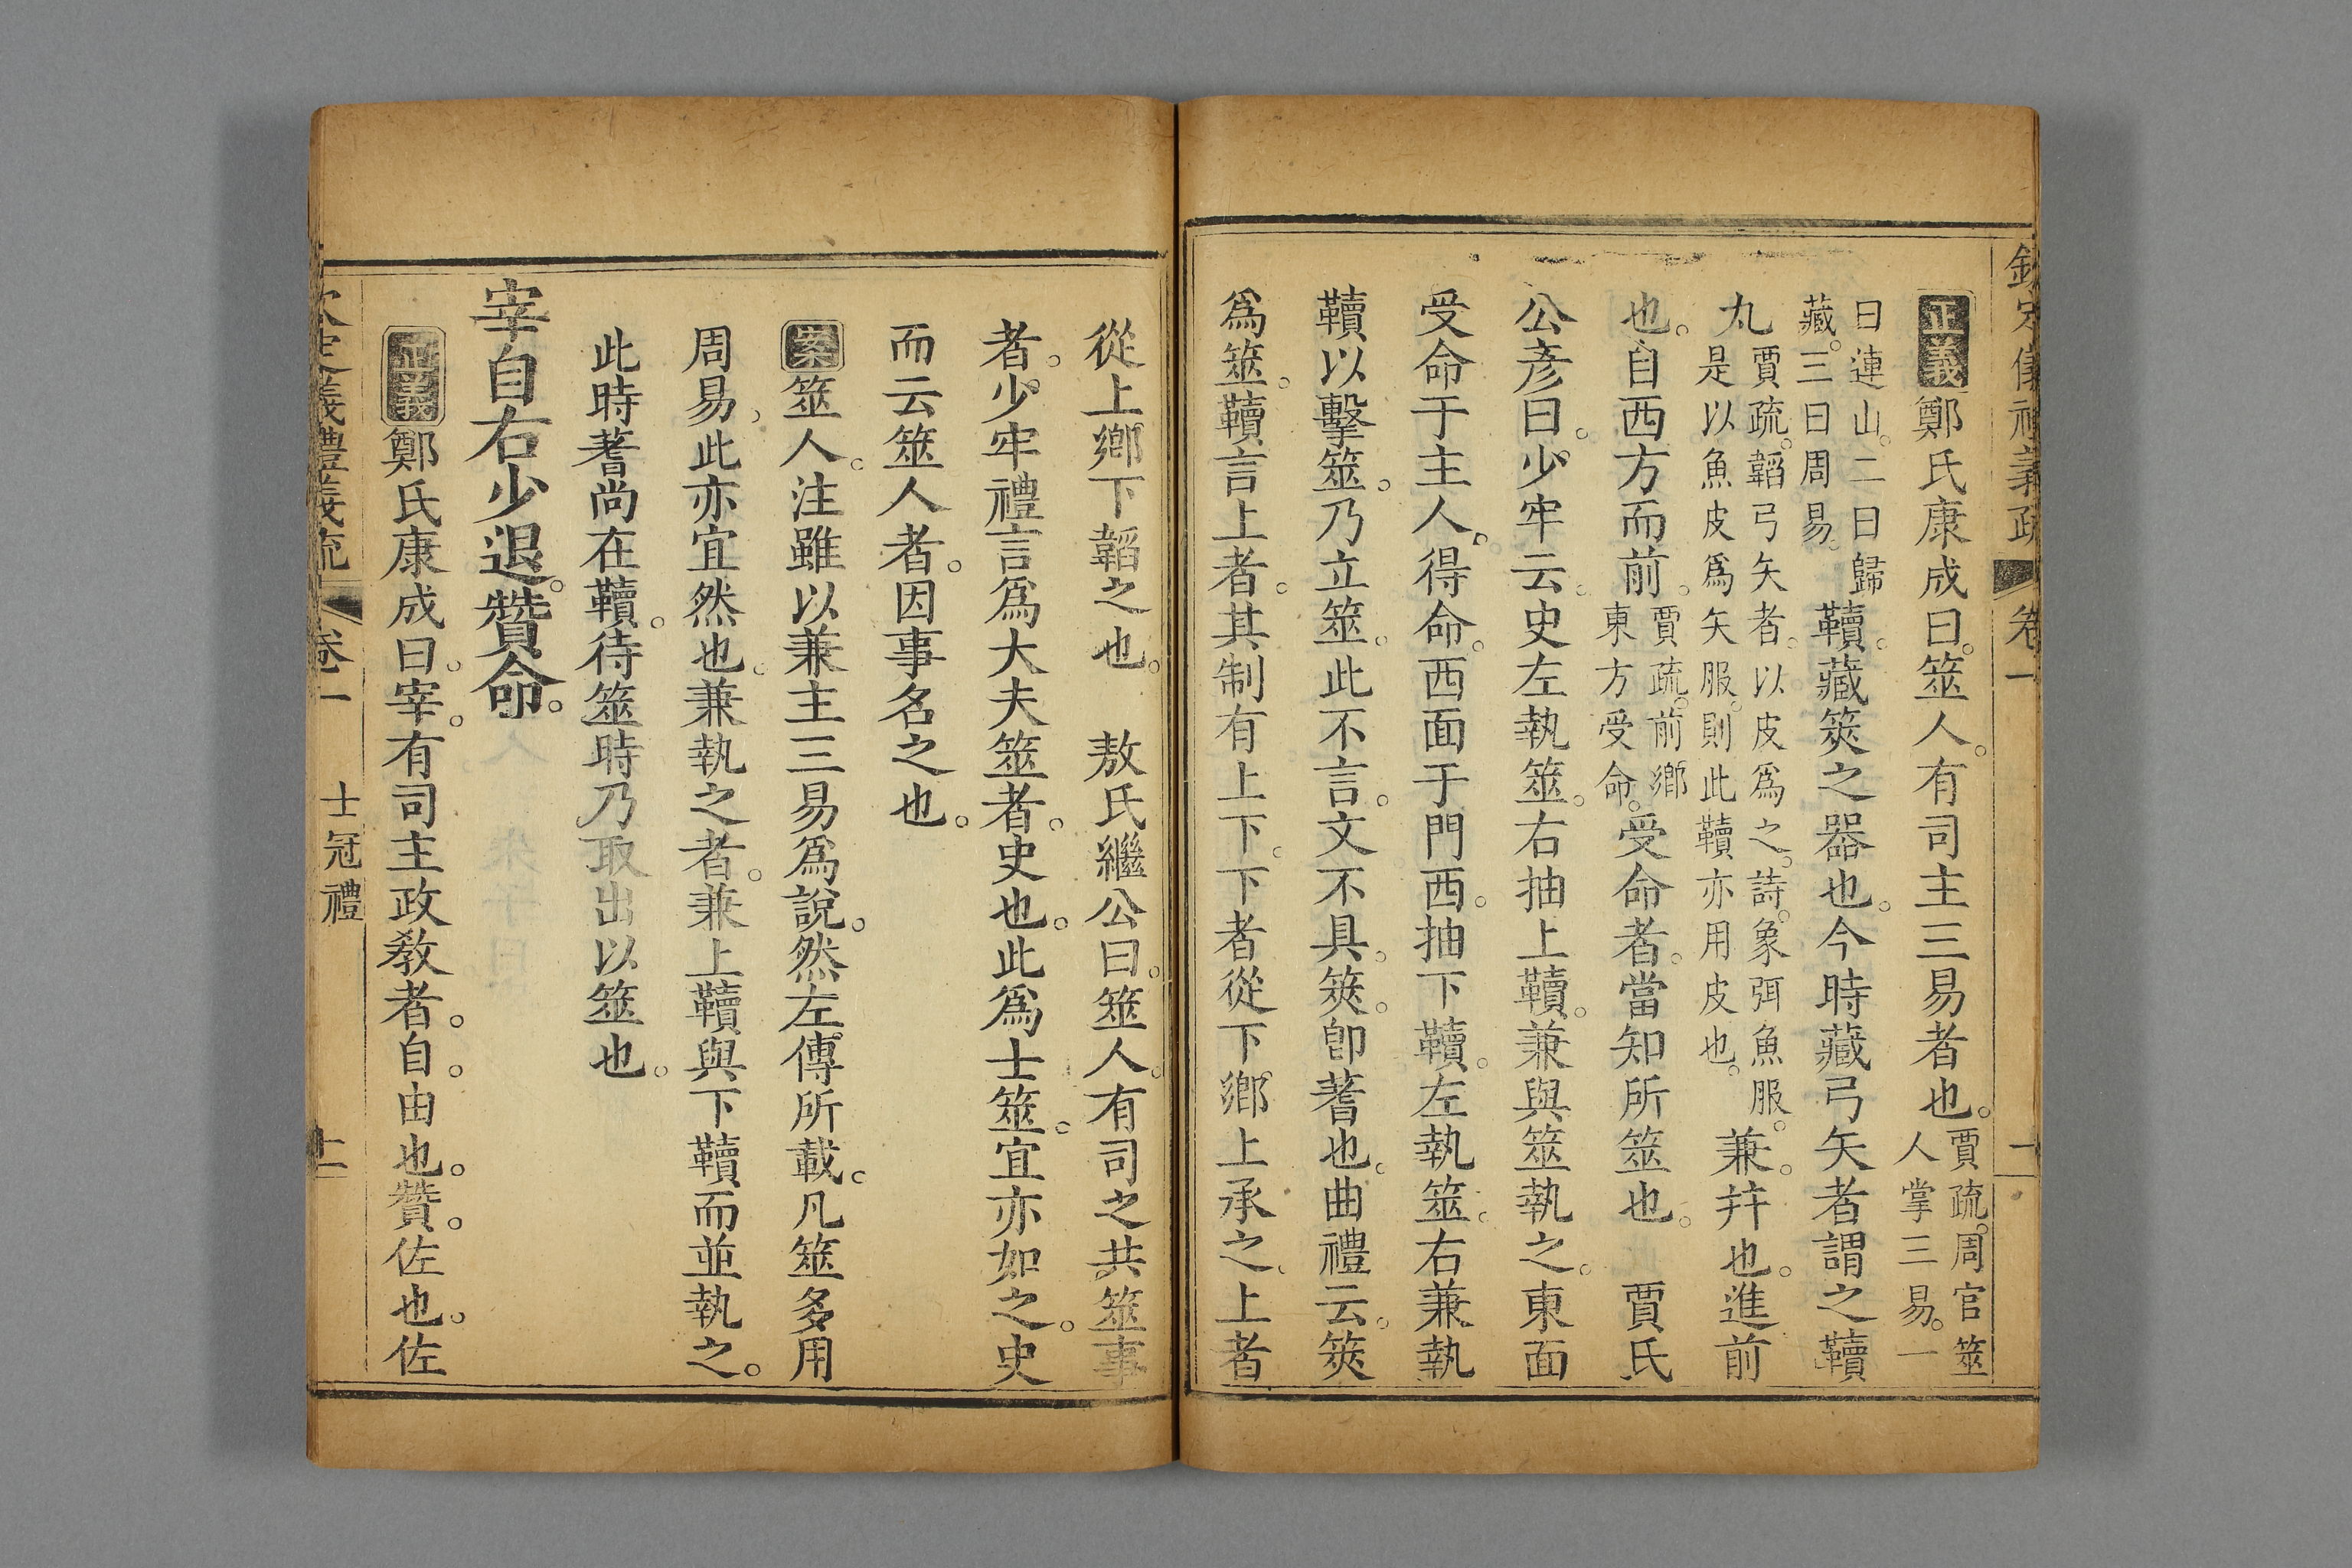 欽定儀禮義疏 卷一
正義鄭氏康成曰。筮人。有司主三易者也。賈疏。周官筮人掌三易。一
曰連山。二曰歸藏。三曰周易。韇。藏筴之器也。今時藏弓矢者謂之韇
丸賈疏。韜弓矢者。以皮爲之。詩。象弭魚服。是以魚皮爲矢服。則此韇亦用皮也。兼。幷也。進前
也。自西方而前。賈疏。前。鄉東方受命。受命者。當知所筮也。 賈氏
公彥曰。少牢云。史左執筮。右抽上韇。兼與筮執之。東面
受命于主人。得命。西面于門西。抽下韇。左執筮。右兼執
韇以擊筮。乃立筮。此不言。文不具。筴。卽蓍也。曲禮云。筴
爲筮。韇言上者。其制有上下。下者從下鄉上承之。上者
從上鄉下韜之也。 敖氏繼公曰。筮人。有司之共筮事
者。少牢禮言爲大夫筮者。史也。此爲士筮。宜亦如之。史
而云筮人者。因事名之也。
案筮人。注雖以兼主三易爲說。然左傳所載。凡筮多用
周易。此亦宜然也。兼執之者。兼上韇與下韇而並執之。
此時蓍尚在韇。待筮時乃取出以筮也。
宰自右少退。贊命。
正義鄭氏康成曰。宰。有司主政教者。自。由也。贊。佐也。佐
欽定儀禮義疏 卷一 士冠禮 十二